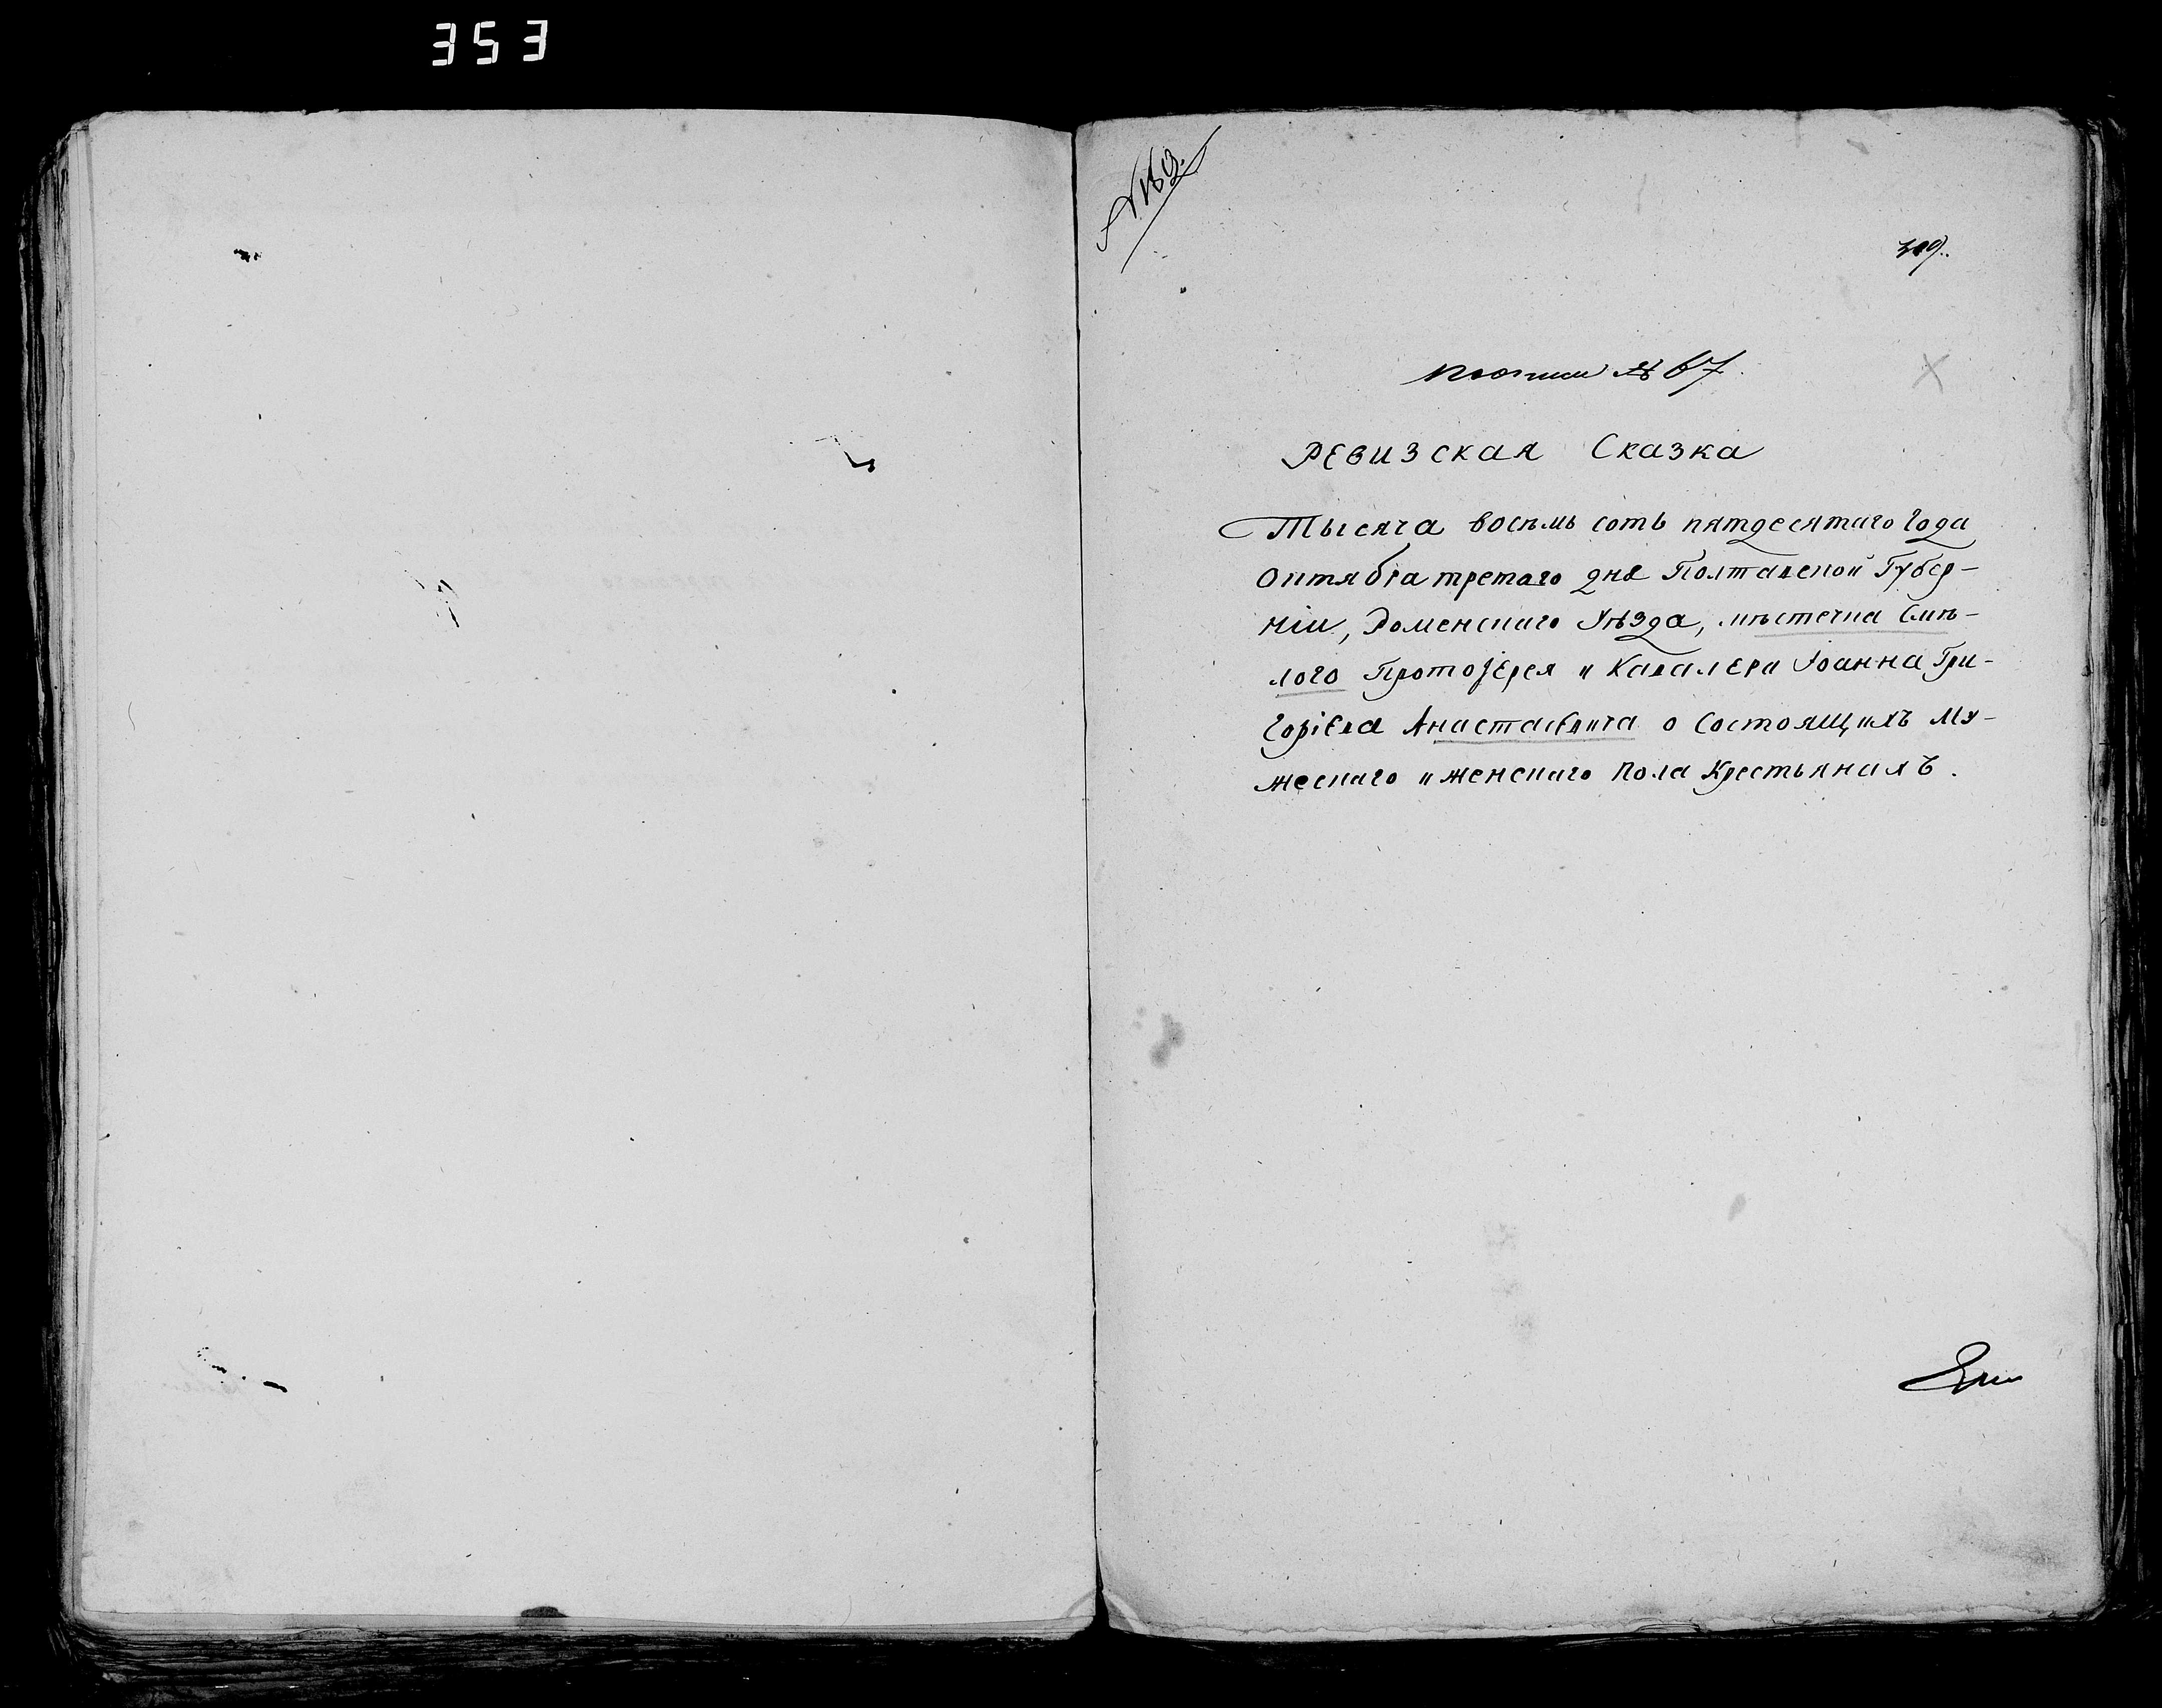 353
№ 169.
309.
по описи № 67.
Ревизская Сказка
Тысяча восемь сотъ пятдесятаго года
октября третаго дня Полтавской Губер-
ніи, Роменскаго Уѣзда, мѣстечка Смѣ-
лого Протоіерея и Кавалера Іоанна Гри-
горіева Анастасевича о состоящихъ му-
жескаго и женскаго пола крестьянахъ.